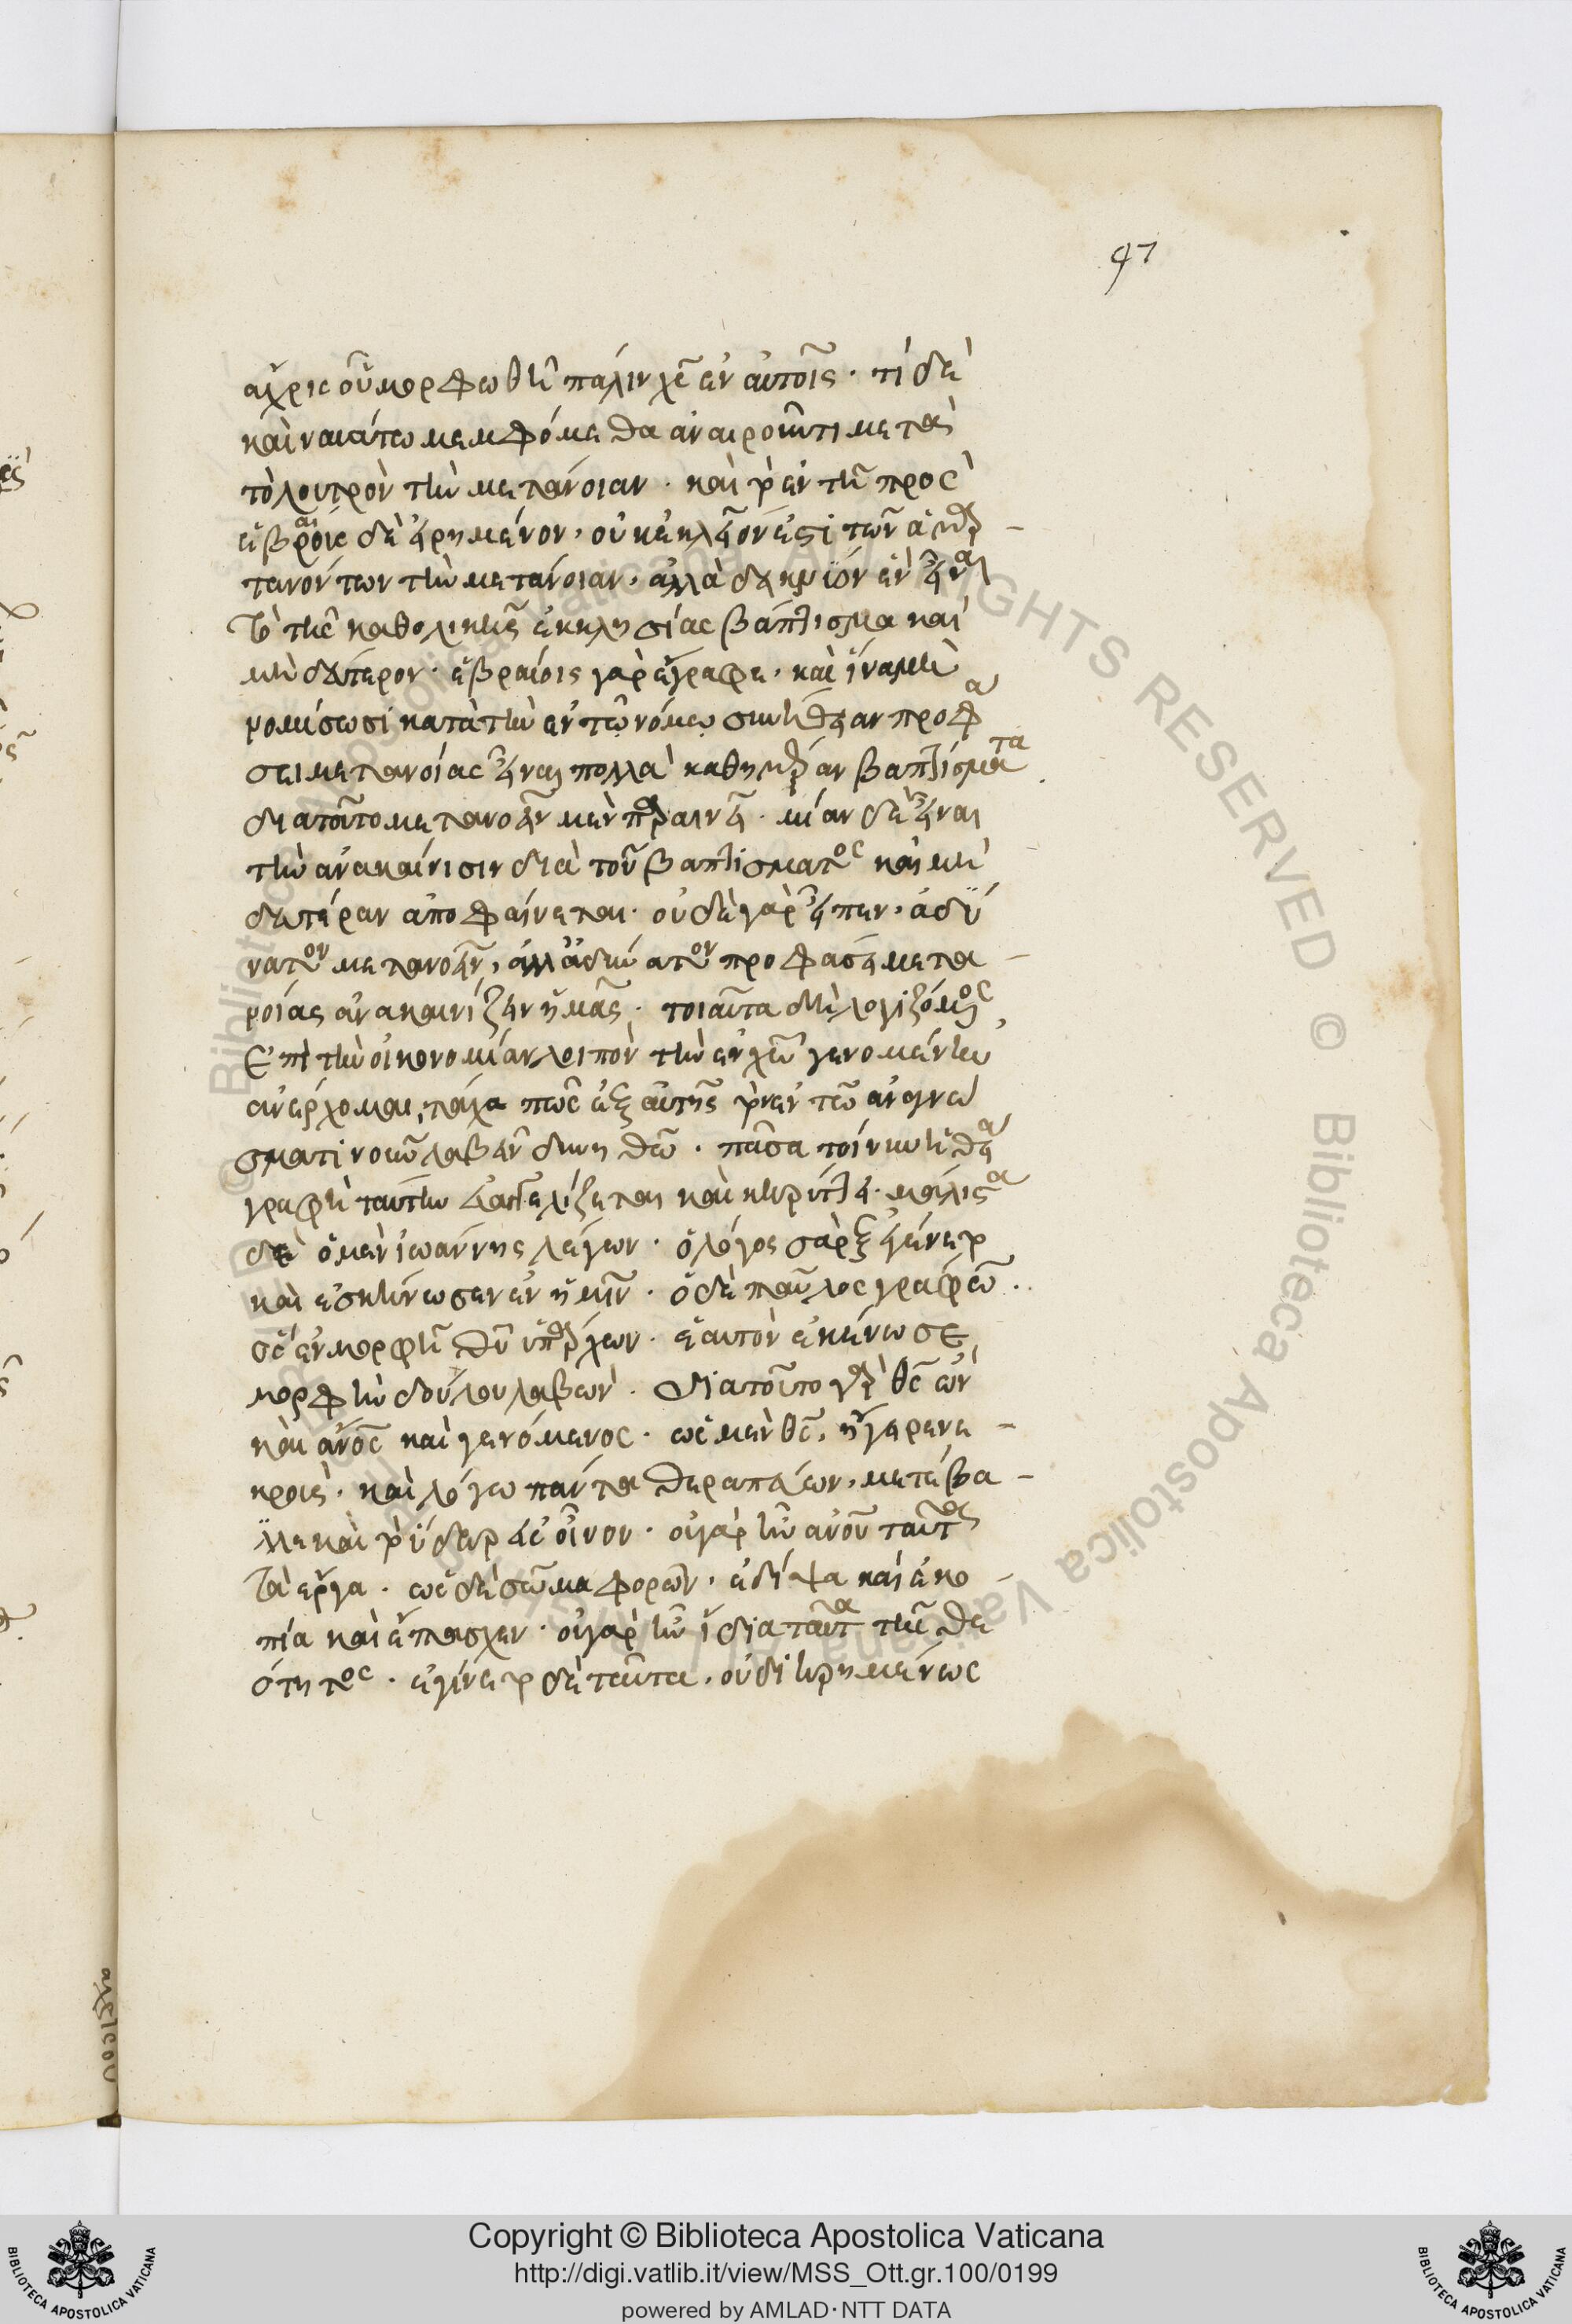 97
ἄχρις οὗ μορφωθῆ πάλιν χς ἐν αὐτοῖς · τί δὲ
καὶ ναυάτω μεμφόμεθα ἀναιροῦντι μετὰ
τὸ λουτρὸν τὴν μετάνοιαν · καὶ τὸ ἐν τῆ πρὸς
ἑβραίοις δὲ εἰρημένον, οὐκ ἐκκλεῖον ἐστὶ τῶν ἁμαρ-
τανόντων τὴν μετάνοιαν, ἀλλὰ δεικνύον ἓν εἶναι
τὸ τῆς καθολικῆς ἐκκλησίας βάπτισμα καὶ
μὴ δεύτερον · ἑβραίοις γὰρ ἔγραφε, καὶ ἵνα μὴ
νομίσωσι κατὰ τὴν ἐν τῷ νόμῳ συνήθειαν προφά
σει μετανοίας εἶναι πολλὰ καθημέραν βαπτίσματα
διατοῦτο μετανοεῖν μὲν παραινεῖ · μίαν δὲ εἶναι
τὴν ἀνακαίνισιν διὰ τοῦ βαπτίσματος καὶ μὴ
δευτέραν ἀποφαίνεται · οὐδὲ γὰρ εἶπεν, ἀδύ
νατον μετανοεῖν, ἀλλ' ἀδύνατον προφάσει μετα-
νοίας ἀνακαινίζειν ἡμᾶς · τοιαῦτα δὴ λογιζόμενος
ἐπὶ τὴν οἰκονομίαν λοιπὸν τὴν ἐν χῶ γενομένην
ἀνέρχομαι, τάχα πῶς ἐξ αὐτῆς τὸν ἐν τῶ ἀναγνώ
σματι νοῦν λαβεῖν δυνηθῶ · πᾶσα τοίνυν ἡ θεία
γραφὴ ταύτην εὐαγγελίζεται καὶ κηρύττει · μάλιστα
δὲ ὁ μὲν ἰωάννης λέγων · ὁ λόγος σὰρξ ἐγένετο
καὶ ἐσκήνωσεν ἐν ἡμῖν · ὁ δὲ παῦλος γράφων ·
ὃς ἐν μορφῆ θῦ ὑπάρχων · ἑαυτὸν ἐκένωσε
μορφὴν δούλου λαβών · διατοῦτο γὰρ θς ὢν
καὶ ἄνος καὶ γενόμενος · ὡς μὲν θς, ἤγειρε νε-
κροὺς, καὶ λόγω πάντα θεραπεύων, μετέβα-
λλε καὶ τὸ ὕδωρ εἰς οἶνον · οὐ γὰρ ἦν ἀνοῦ ταῦτα
τὰ ἔργα · ὡς δὲ σῶμα φορῶν, ἐδίψα καὶ ἐκο-
πία καὶ ἔπασχεν · οὐ γὰρ ἦν ἴδια ταῦτα τῆς θε
ότητος · ἐγίνετο δὲ ταῦτα, οὐ διῃρημένως
Copyright © Biblioteca Apostolica Vaticana
http://digi.vatlib.it/view/MSS_Ott.gr.100/0199
powered by AMLAD·NTT DATA